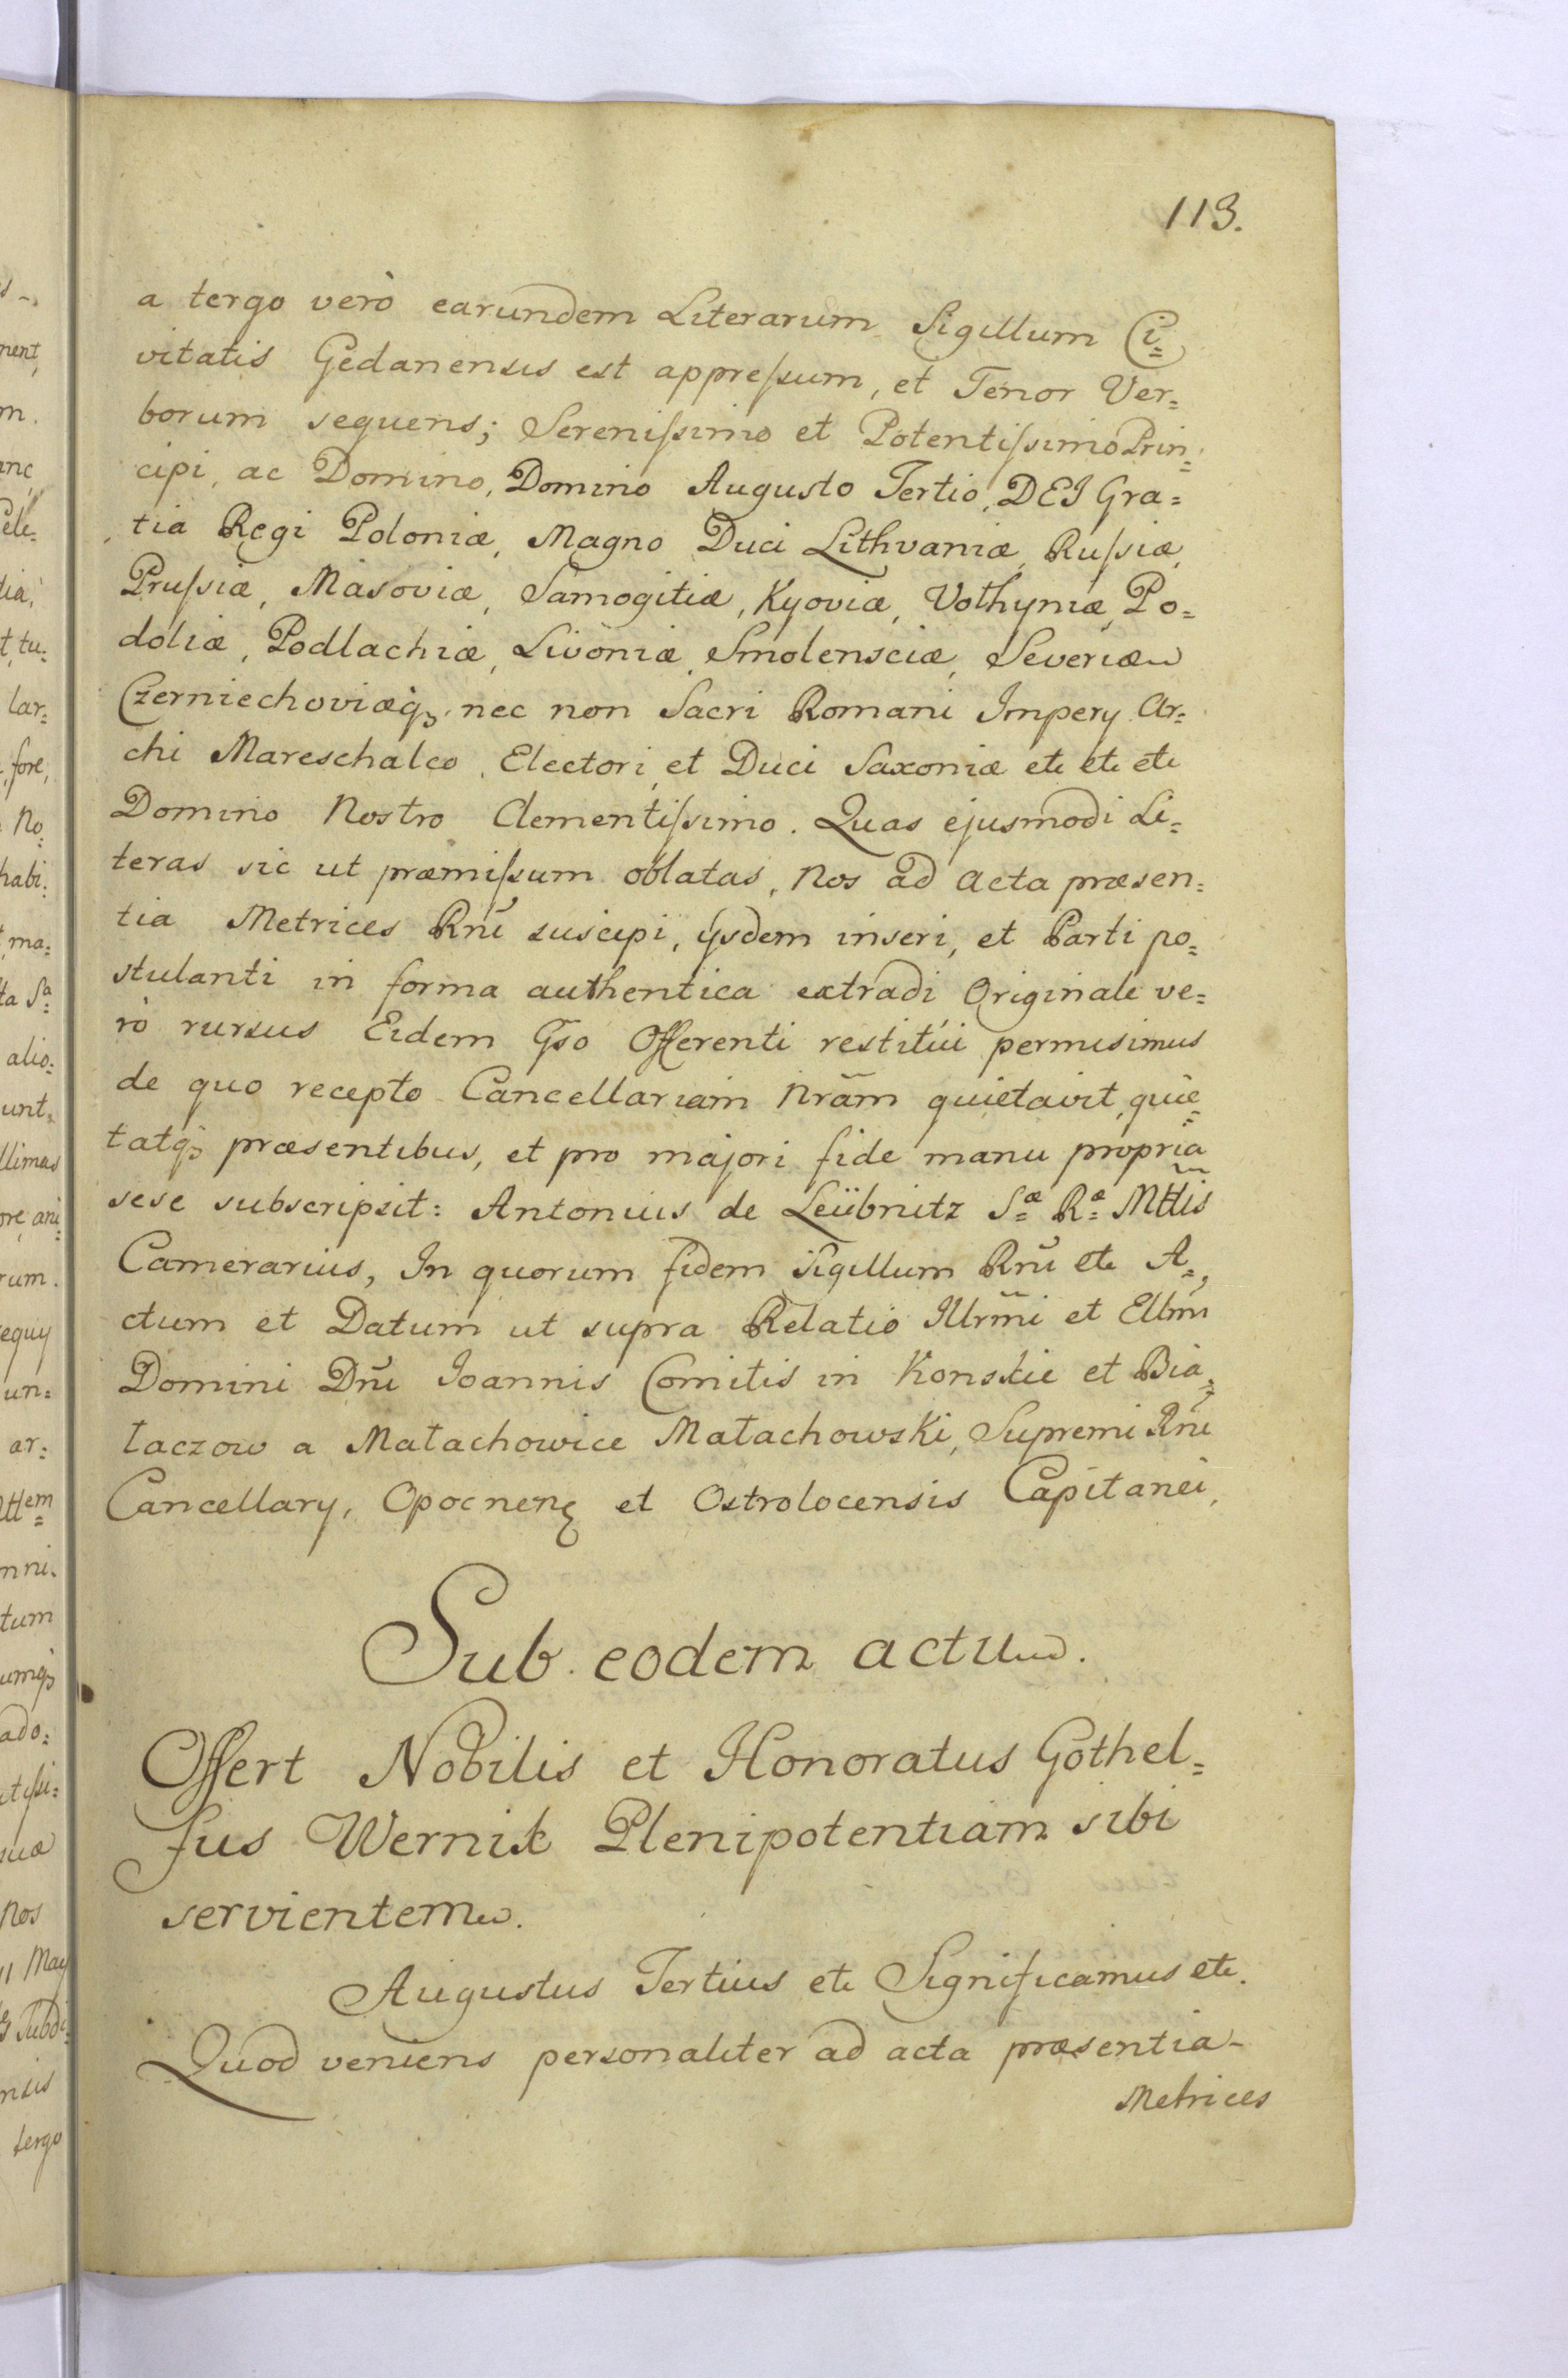 113.
a tergo verò earundem Literarum Sigillum Ci=
vitatis Gedanensis est appreſsum, et Tenor Ver=
borum sequens; Sereniſsimo et Potentiſsimo Prin=
cipi, ac Domino, Domino Augusto Tertio, DEI Gra=
tia Regi Poloniæ, Magno Duci Lithvaniæ, Ruſsiæ,
Pruſsiæ, Masoviæ, Samogitiæ, Kyoviæ, Volhyniæ, Po=
doliæ, Podlachiæ, Livoniæ, Smolensciæ, Severiæ
Czerniechoviæq₃, nec non Sacri Romani Impery Ar=
chi Mareschalco, Electori, et Duci Saxoniæ etc etc etc
Domino Nostro Clementiſsimo. Quas ejusmodi Li=
teras sic ut præmiſsum oblatas, Nos ad Acta præsen=
tia Metrices Rnĩ suscipi, ysdem inseri, et Parti po=
stulanti in forma authentica extradi Originale ve=
rò rursus Eidem Gso Offerenti restitúi permisimus
de quo recepto Cancellariam Nrãm quietavit, quie=
tatq₃ præsentibus, et pro majori fide manu propria
sese subscripsit: Antonius de Leübnitz Sæ= Ræ= Mttis
Camerarius, In quorum fidem Sigillum Rnĩ etc A=
ctum et Datum ut supra Relatio Illrm̃i et Ellm̃i
Domini Dnĩ Joannis Comitis in Konskie et Bia=
łaczow a Małachowice Małachowski, Supremi Rnĩ
Cancellary, Opocnenς et Ostrolocensis Capitanei,
Sub eodem actu.
Offert Nobilis et Honoratus Gothel=
fus Wernik Plenipotentiam sibi
servientem.
Augustus Tertius etc Significamus etc.
Quod veniens personaliter ad acta præsentia
Metrices